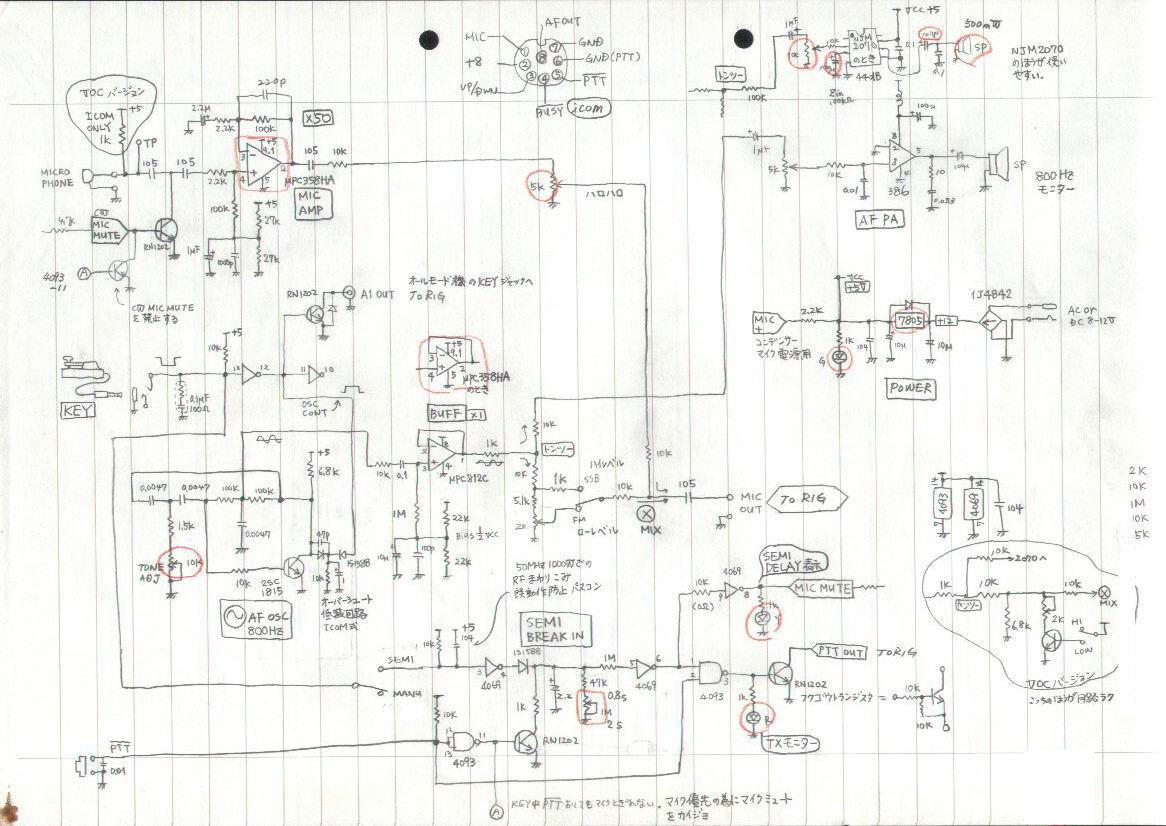 MIC
+8
UP/DOWN
AF OUT
GND
GND(PTT)
PTT
BUSY
icom
1
2
3
4
5
6
7
8
JOCバージョン
ICOM
ONLY
1k
+5
TP
MICRO
PHONE
105
105
2.2M
2.2K
2.2K
100K
220p
+5
9.1
×50
105
10K
μPC358HA
MIC
AMP
100K
+5
27K
27K
1μF
1000p
4.7K
CW
MIC
MUTE
RN1202
4093
-11
A
CW MIC MUTE
を禁止する
5K
ハロハロ
トンツー
100K
1μF
10K
NJM
2070
のとき
44dB
VCC +5
500mW
SP
0.1
NJM2070
のほうが使い
やすい。
1μF
5K
10K
0.01
386
100μ
10
0.033
SP
800Hz
モニター
AF PA
RN1202
A1 OUT
オールモード機のKEYジャックへ
TO RIG
+5
9.1
μPC358HA
のとき
BUFF
×1
KEY
10K
+5
0.1μF
100Ω
13
12
11
10
OSC
CONT
VCC
+5V
MIC
+
コンデンサー
マイク電源用
2.2K
1K
G
104
7805
10μ
+12
10M
1J4B42
AC or
DC 8-12V
POWER
0.0047
0.0047
100K
100K
+5
6.8K
1.5K
TONE
ADJ
10K
0.0047
10K
2SC
1815
47p
1S1588
10K
オーバーシュート
低減回路
ICOM式
AF OSC
800Hz
10K
0.1
1K
μPC812C
1M
22K
22K
Bias ½VCC
10μ
100p
10K
トンツー
10K
5.1K
2K
1K
ハイレベル
SSB
FM
ローレベル
10K
10K
MIX
105
MIC
OUT
TO RIG
4093
4069
104
2K
10K
1M
10K
5K
50MHz 1000Wでの
RFまわりこみ
誤動作防止パスコン
SEMI
BREAK IN
SEMI
MANU
10K
+5
104
4069
1S1588
1K
2.2
47K
0.8s
1M
2S
1M
4069
10K
(0Ω)
4069
SEMI
DELAY表示
MIC MUTE
4093
1K
R
TXモニター
PTT OUT
TO RIG
RN1202
フクゴウトランジスタ =
10K
10K
1K
トンツー
10K
2070へ
10K
10K
MIX
6.8K
2K
HI
LOW
JOCバージョン
こっちのほうが回路ラク
PTT
0.01
10K
12
13
11
4093
RN1202
A
KEY中PTTおしてもマイクときれない。マイク優先の為にマイクミュート
をカイジョ